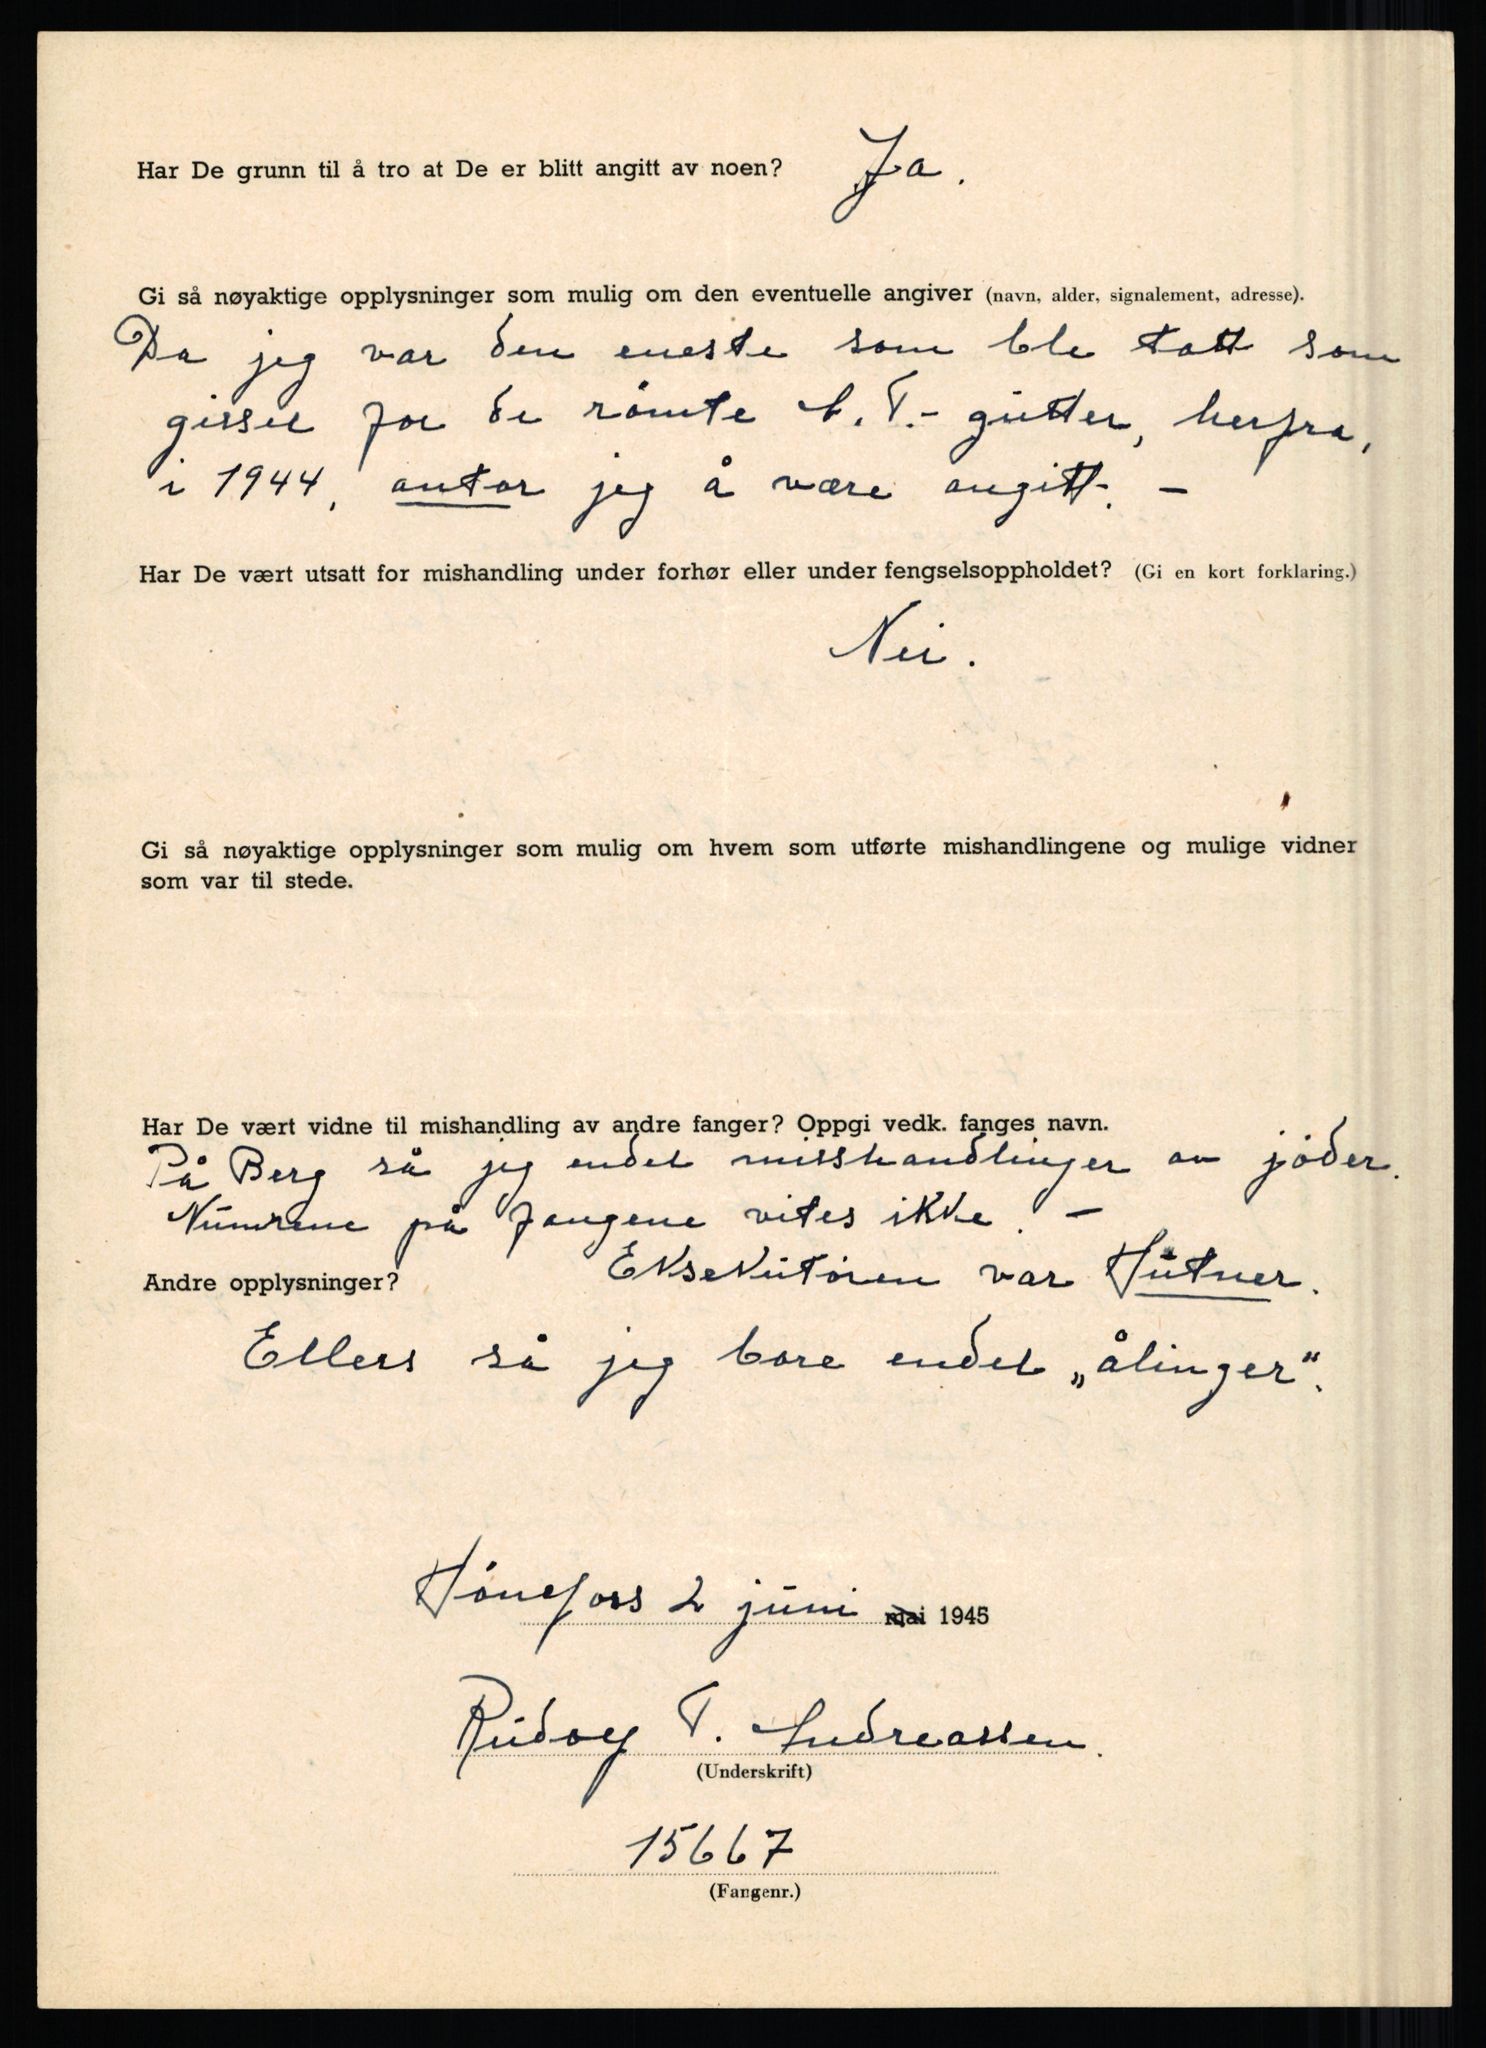 Har De grunn til å tro at De er blitt angitt av noen? Ja.
Gi så nøyaktige opplysninger som mulig om den eventuelle angiver (navn, alder, signalement, adresse).
Da jeg var den eneste som ble tatt som
gissel for de rømte A.T.- gutter, herfra,
i 1944, antar jeg å være angitt. -
Har De vært utsatt for mishandling under forhør eller under fengselsoppholdet? (Gi en kort forklaring.)
Nei.
Gi så nøyaktige opplysninger som mulig om hvem som utførte mishandlingene og mulige vidner
som var til stede.
Har De vært vidne til mishandling av andre fanger? Oppgi vedk. fanges navn.
På Berg så jeg endel misshandlinger av jøder.
Numrene på fangene vites ikke. -
Eksekutøren var Hütner.
Andre opplysninger?
Ellers så jeg bare endel „ålinger".
Hønefoss 2 juni mai 1945
Rudolf T. Andreassen.
(Underskrift)
15667
(Fangenr.)